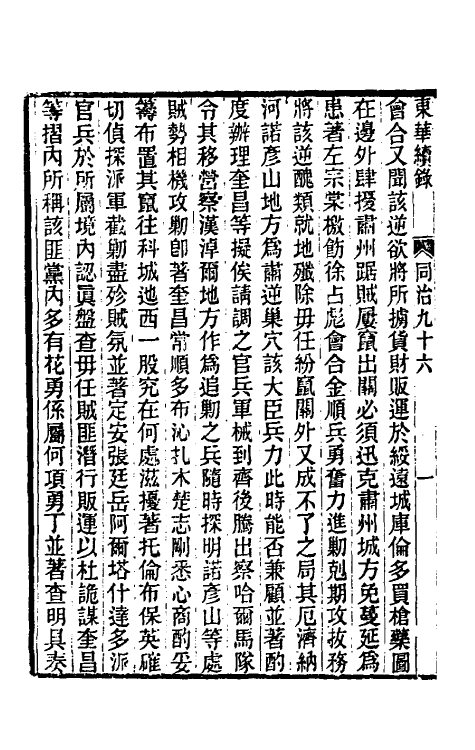 東華續錄 同治九十六 一
會合又聞該逆欲將所擄貨財販運於綏遠城庫倫多買槍藥圖
在邊外肆擾肅州踞賊屢竄出關必須迅克肅州城方免蔓延爲
患著左宗棠檄飭徐占彪會合金順兵勇奮力進勦剋期攻拔務
將該逆醜類就地殲除毋任紛竄關外又成不了之局其厄濟納
河諾彥山地方爲肅逆巢穴該大臣兵力此時能否兼顧並著酌
度辦理奎昌等擬俟請調之官兵軍械到齊後騰出察哈爾馬隊
令其移營察漢淖爾地方作爲追勦之兵隨時探明諾彥山等處
賊勢相機攻勦卽著奎昌常順多布沁扎木楚志剛悉心商酌妥
籌布置其竄往科城迤西一股究在何處滋擾著托倫布保英確
切偵探派軍截勦盡殄賊氛並著定安張廷岳阿爾塔什達多派
官兵於所屬境內認眞盤查毋任賊匪潛行販運以杜詭謀奎昌
等摺內所稱該匪黨內多有花勇係屬何項勇丁並著查明具奏